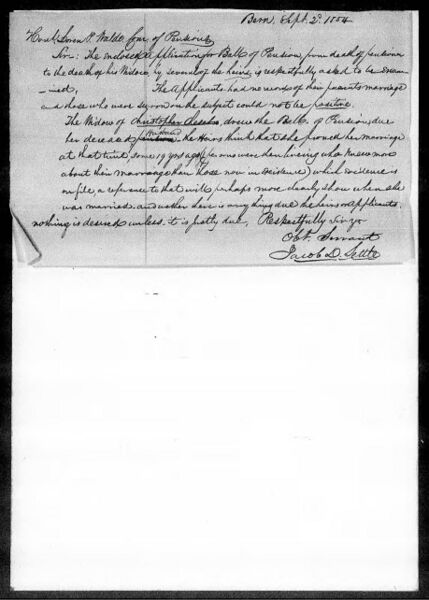 Bern, Sept. 2d, 1854
Hon. Loren P. Waldo, Com. of Pensions
Sir: The enclosed Application for Ball. of Pension, from death of pensioner
to the death of his Widow, by several of the heirs, is respectfully asked to be exam-
-ined, The Applicants had no records of their parents marriage
and those who were sworn on the subject could not be positive.
The Widow of Christopher drew the Ball. of Pension, due
her deceased husband, the Heirs think that she proved her marriage
at that time some 19 years ago, (persons were then living who knew more
about their marriage than those now in existence) which evidence is
on file, a reference to that will perhaps more clearly show when she
was married, and wether there is any thing due the heirs or applicants.
nothing is desired unless it is justly due, Respectfully Sir, your
Obt. Servant
Jacob D. Settle